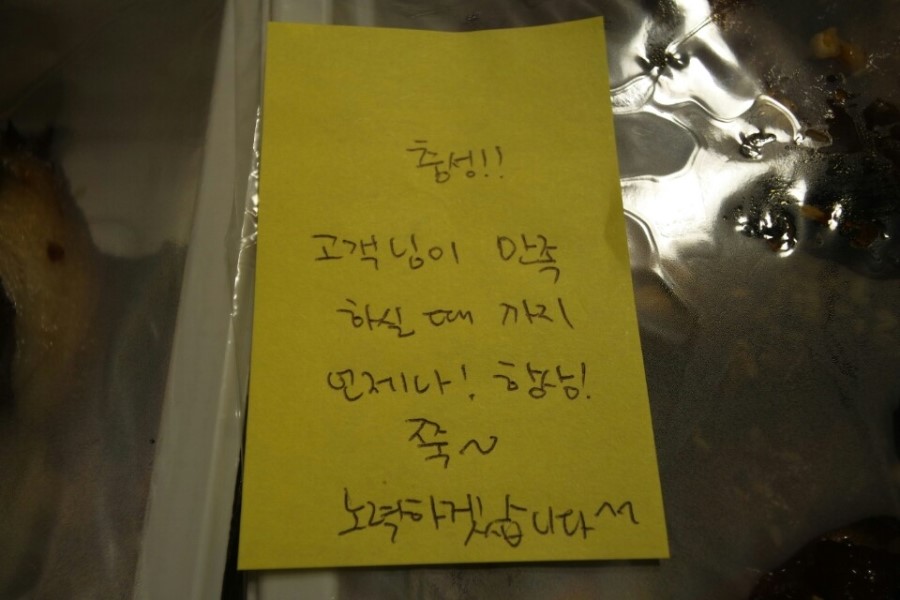 충성!!
고객님이 만족
하실 때 까지
언제나! 항상!
쭉~
노력하겠습니다^^